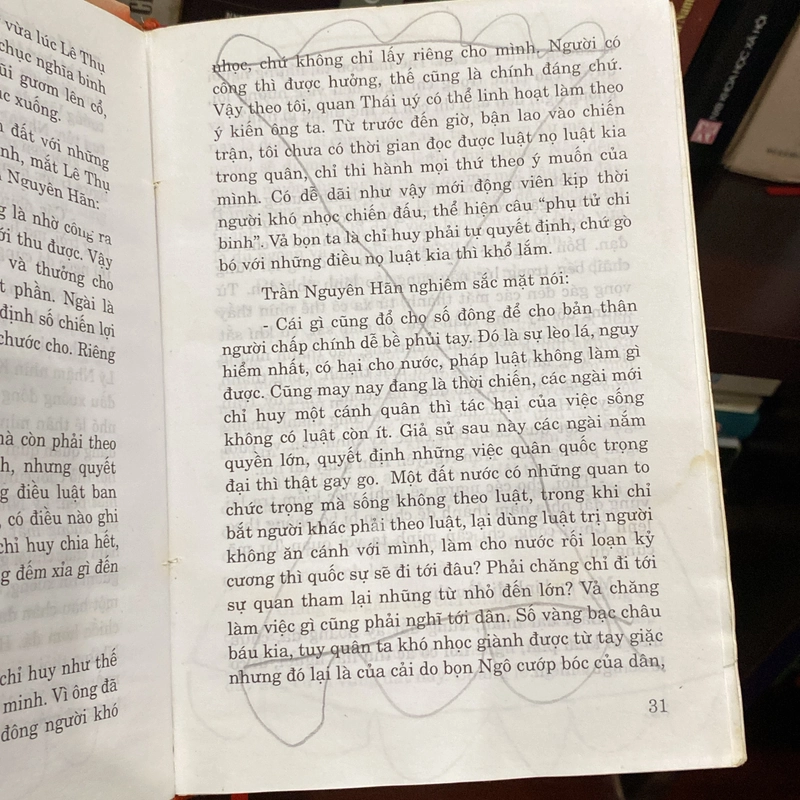 vừa lúc Lê Thụ
chục nghĩa binh
gươm lên cổ,
xuống.
đất với những
mắt Lê Thụ
Nguyên Hãn:
là nhờ công ra
thu được. Vậy
và thưởng cho
phần. Ngài là
định số chiến lợi
chước cho. Riêng
còn phải theo
nhưng quyết
điều luật ban
có điều nào ghi
chỉ huy chia hết,
đếm xỉa gì đến
chỉ huy như thế
minh. Vì ông đã
đông người khó
nhọc, chứ không chỉ lấy riêng cho mình. Người có
công thì được hưởng, thế cũng là chính đáng chứ.
Vậy theo tôi, quan Thái uý có thể linh hoạt làm theo
ý kiến ông ta. Từ trước đến giờ, bận lao vào chiến
trận, tôi chưa có thời gian đọc được luật nọ luật kia
trong quân, chỉ thi hành mọi thứ theo ý muốn của
mình. Có dễ dãi như vậy mới động viên kịp thời
người khó nhọc chiến đấu, thể hiện câu “phụ tử chi
binh”. Vả bọn ta là chỉ huy phải tự quyết định, chứ gò
bó với những điều nọ luật kia thì khổ lắm.
Trần Nguyên Hãn nghiêm sắc mặt nói:
- Cái gì cũng đổ cho số đông để cho bản thân
người chấp chính dễ bề phủi tay. Đó là sự lèo lá, nguy
hiểm nhất, có hại cho nước, pháp luật không làm gì
được. Cũng may nay đang là thời chiến, các ngài mới
chỉ huy một cánh quân thì tác hại của việc sống
không có luật còn ít. Giả sử sau này các ngài nắm
quyền lớn, quyết định những việc quân quốc trọng
đại thì thật gay go. Một đất nước có những quan to
chức trọng mà sống không theo luật, trong khi chỉ
bắt người khác phải theo luật, lại dùng luật trị người
không ăn cánh với mình, làm cho nước rối loạn kỷ
cương thì quốc sự sẽ đi tới đâu? Phải chăng chỉ đi tới
sự quan tham lại nhũng từ nhỏ đến lớn? Vả chăng
làm việc gì cũng phải nghĩ tới dân. Số vàng bạc châu
báu kia, tuy quân ta khó nhọc giành được từ tay giặc
nhưng đó lại là của cải do bọn Ngô cướp bóc của dân,
31
KHOA HỌC XÃ HỘI